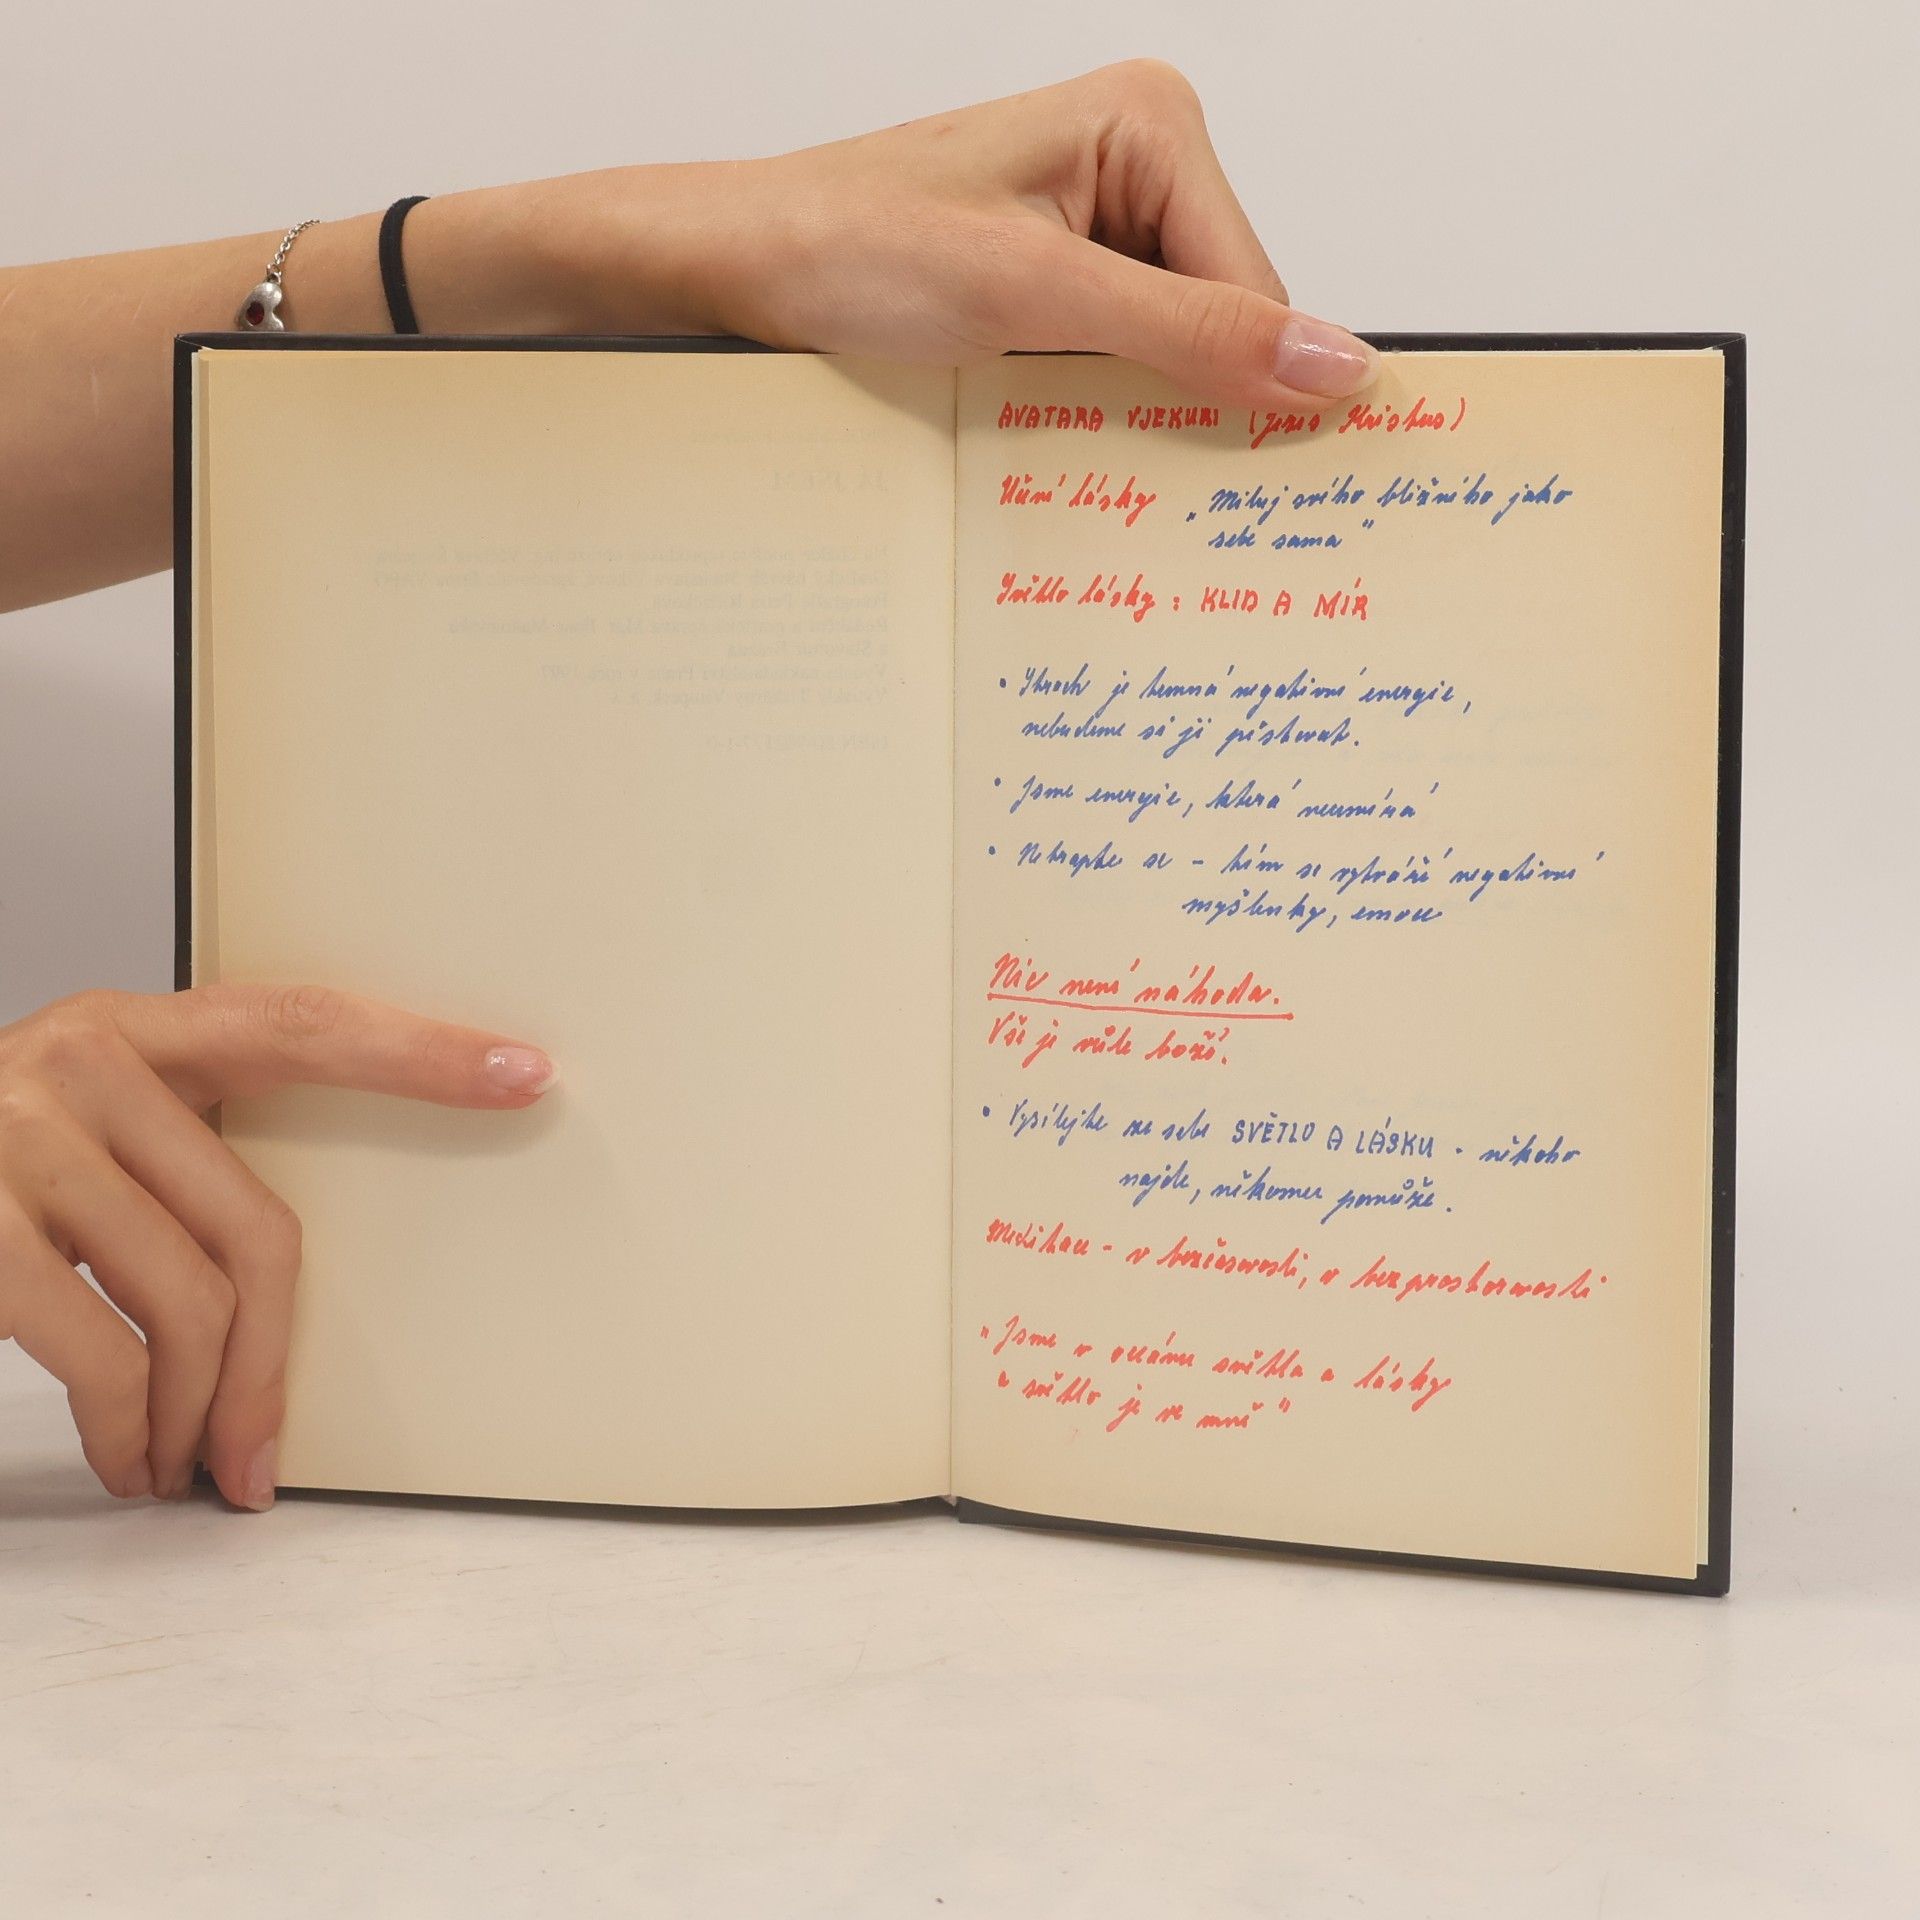 AVATARA VJEKURI (Ježíš Kristus)
Učení lásky „Miluj svého bližního jako
sebe sama"
Světlo lásky : KLID A MÍR
• Strach je temná negativní energie,
nebudeme si ji pěstovat.
• Jsme energie, která neumírá
• Netrapte se - tím se vytváří negativní
myšlenky, emoce
Nic není náhoda.
Vše je vůle boží.
• Vysílejte ze sebe SVĚTLO A LÁSKU - někoho
najde, někomu pomůže.
Meditace - v bezčasovosti, v bezprostorovosti
"Jsme v oceánu světla a lásky
a světlo je ve mně"